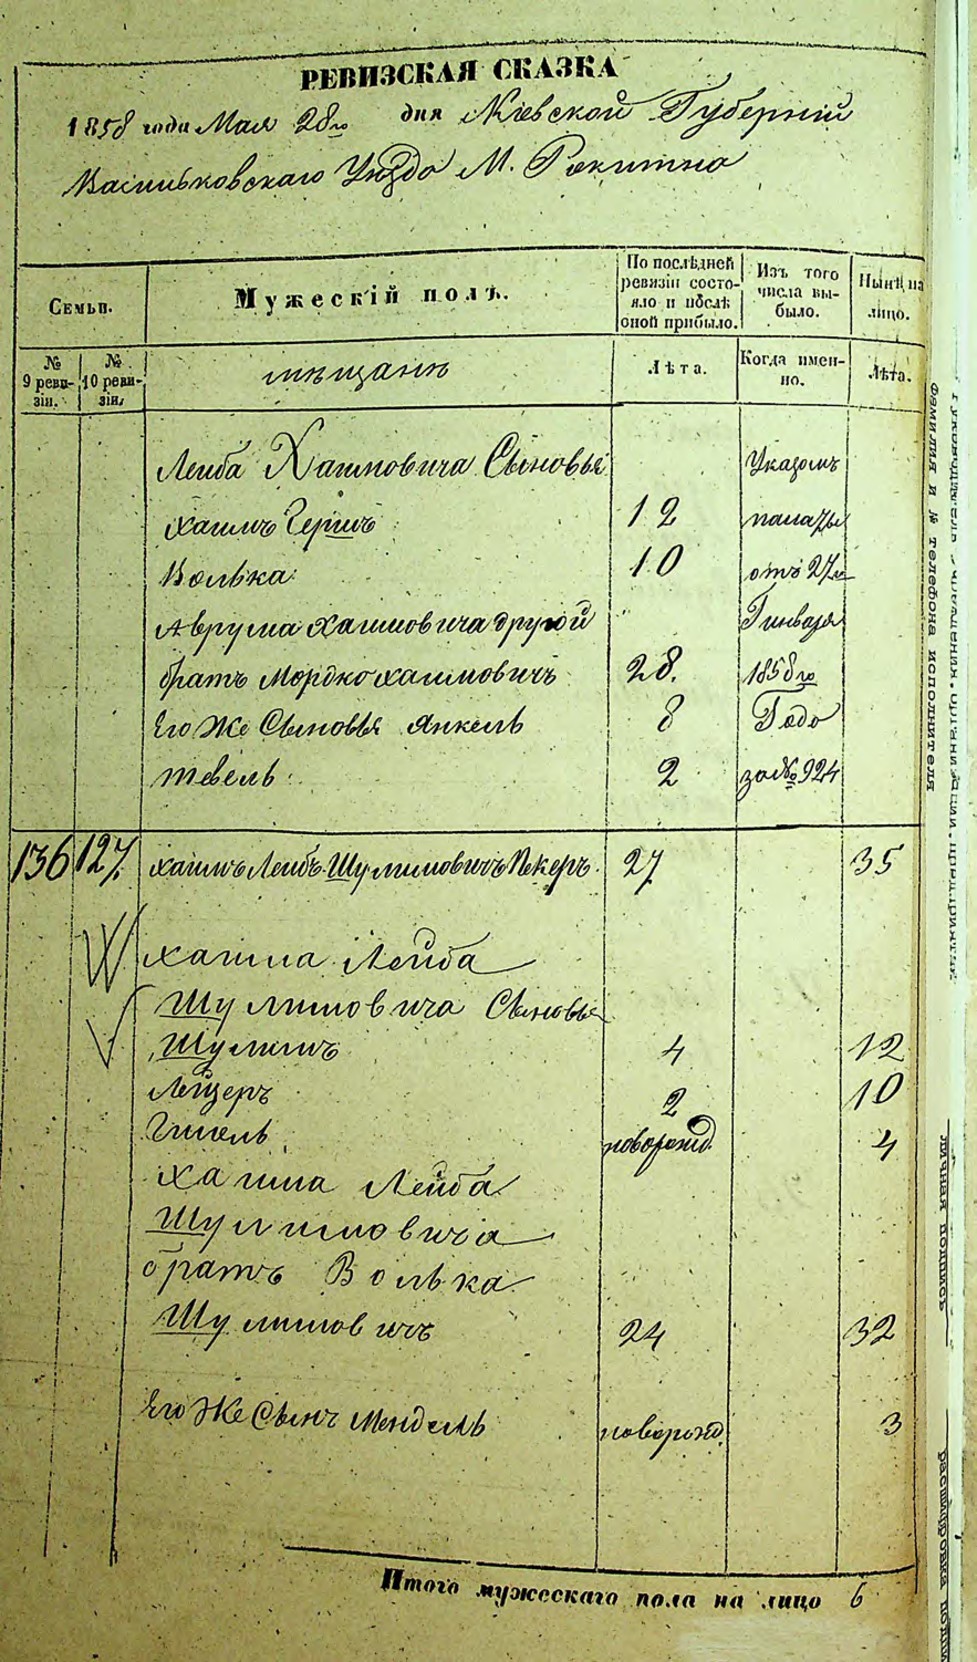 РЕВИЗСКАЯ СКАЗКА
1858 года Мая 28го дня Кіевской Губерніи
Васильковскаго Уезда М. Рокитно
Семьи.
Мужескій полъ.
По послѣдней ревизіи состояло и послѣ оной прибыло.
Изъ того числа выбыло.
Нынѣ на лицо.
№ 9 ревизіи.
№ 10 ревизіи.
мещане
Лѣта.
Когда именно.
Лѣта.
Лейба Хаимовича Сыновья Указомъ
хаимъ Гершъ 12 палаты
Волька 10 отъ 27го
Аврума хаимовича другой Генваря
братъ Мордко хаимовичъ 28. 1858го
Его Же Сыновья Янкель 8 Года
тевель 2 за № 924
136 127. хаимъ Лейбъ Шулимовичъ Пекеръ. 27 35
хаима Лейба
Шулимовича Сыновья
Шулимъ 4 12
Лейзеръ 2 10
новорожд. 4
хаима Лейба
Шулимовича
братъ Волька
Шулимовичъ 24 32
Его Же Сынъ Мендель новорожд. 3
Итого мужескаго пола на лицо 6
Фамилия и № телефона исполнителя
личная подпись